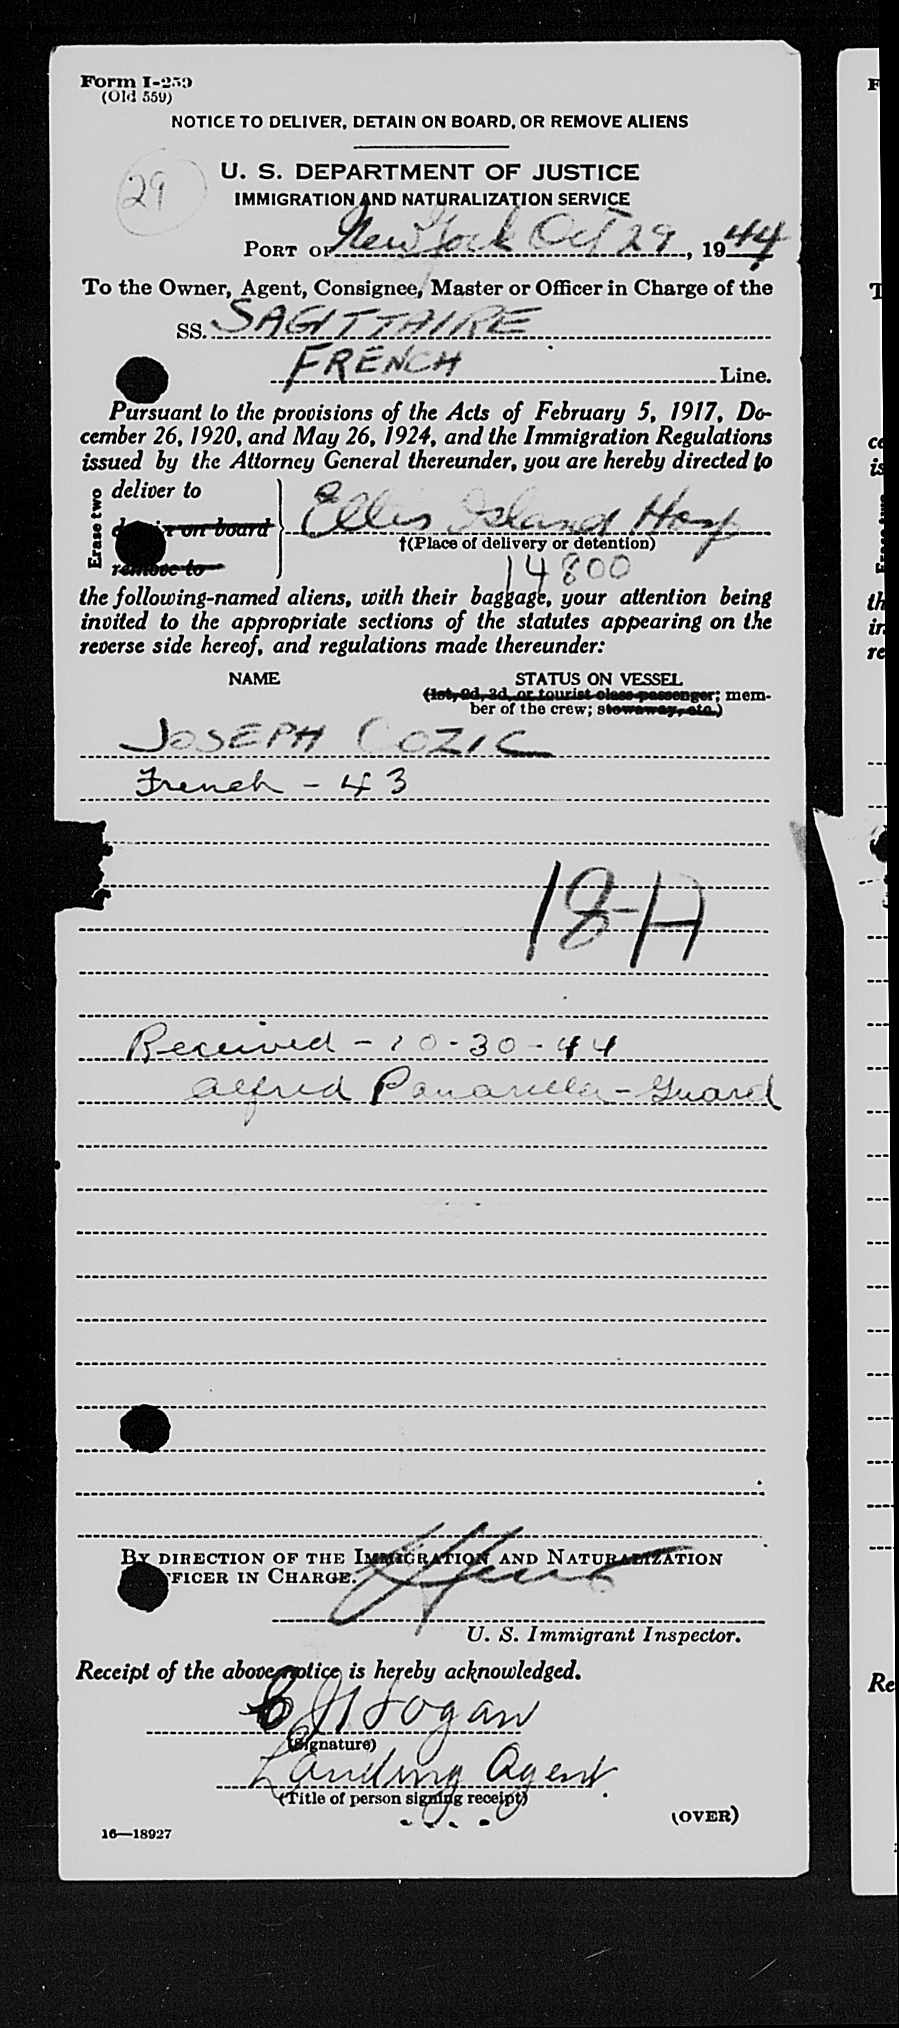 Form I-259
(Old 559)
NOTICE TO DELIVER, DETAIN ON BOARD, OR REMOVE ALIENS
U. S. DEPARTMENT OF JUSTICE
IMMIGRATION AND NATURALIZATION SERVICE
29
PORT OF New York Oct 29, 1944
To the Owner, Agent, Consignee, Master or Officer in Charge of the
SS. SAGITTAIRE
FRENCH Line.
Pursuant to the provisions of the Acts of February 5, 1917, De-
cember 26, 1920, and May 26, 1924, and the Immigration Regulations
issued by the Attorney General thereunder, you are hereby directed to
Erase two
deliver to
detain on board
remove to
Ellis Island Hosp
†(Place of delivery or detention)
14800
the following-named aliens, with their baggage, your attention being
invited to the appropriate sections of the statutes appearing on the
reverse side hereof, and regulations made thereunder:
NAME STATUS ON VESSEL
(1st, 2d, 3d, or tourist class passenger; mem-
ber of the crew; stowaway, etc.)
JOSEPH COZIC
French - 43
18-A
Received - 10-30-44
Alfred - Guard
BY DIRECTION OF THE IMMIGRATION AND NATURALIZATION
OFFICER IN CHARGE.
U. S. Immigrant Inspector.
Receipt of the above notice is hereby acknowledged.
(Signature)
Landing Agent
(Title of person signing receipt)
(OVER)
16—18927